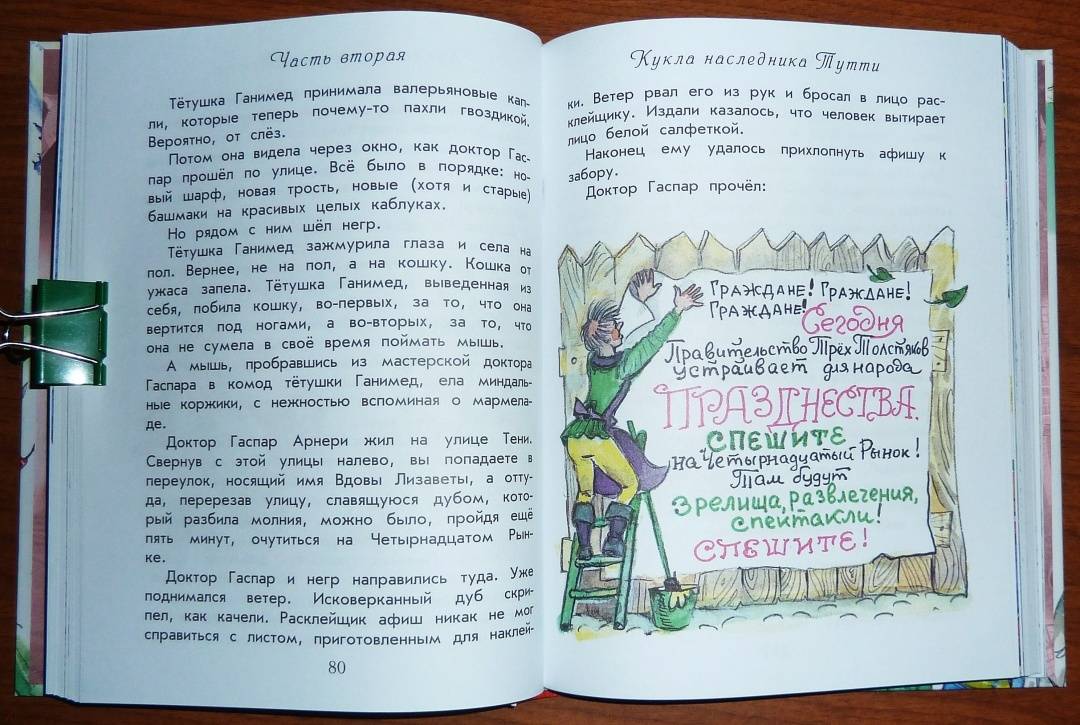 Часть вторая
Тётушка Ганимед принимала валерьяновые кап-
ли, которые теперь почему-то пахли гвоздикой.
Вероятно, от слёз.
Потом она видела через окно, как доктор Гас-
пар прошёл по улице. Всё было в порядке: но-
вый шарф, новая трость, новые (хотя и старые)
башмаки на красивых целых каблуках.
Но рядом с ним шёл негр.
Тётушка Ганимед зажмурила глаза и села на
пол. Вернее, не на пол, а на кошку. Кошка от
ужаса запела. Тётушка Ганимед, выведенная из
себя, побила кошку, во-первых, за то, что она
вертится под ногами, а во-вторых, за то, что
она не сумела в своё время поймать мышь.
А мышь, пробравшись из мастерской доктора
Гаспара в комод тётушки Ганимед, ела миндаль-
ные коржики, с нежностью вспоминая о мармела-
де.
Доктор Гаспар Арнери жил на улице Тени.
Свернув с этой улицы налево, вы попадаете в
переулок, носящий имя Вдовы Лизаветы, а отту-
да, перерезав улицу, славящуюся дубом, кото-
рый разбила молния, можно было, пройдя ещё
пять минут, очутиться на Четырнадцатом Рын-
ке.
Доктор Гаспар и негр направились туда. Уже
поднимался ветер. Исковерканный дуб скри-
пел, как качели. Расклейщик афиш никак не мог
справиться с листом, приготовленным для наклей-
80
Кукла наследника Тутти
ки. Ветер рвал его из рук и бросал в лицо рас-
клейщику. Издали казалось, что человек вытирает
лицо белой салфеткой.
Наконец ему удалось прихлопнуть афишу к
забору.
Доктор Гаспар прочёл:
Граждане! Граждане!
Граждане!
Сегодня
Правительство Трёх Толстяков
устраивает для народа
ПРАЗДНЕСТВА.
СПЕШИТЕ
на Четырнадцатый Рынок!
Там будут
Зрелища, развлечения,
спектакли!
СПЕШИТЕ!